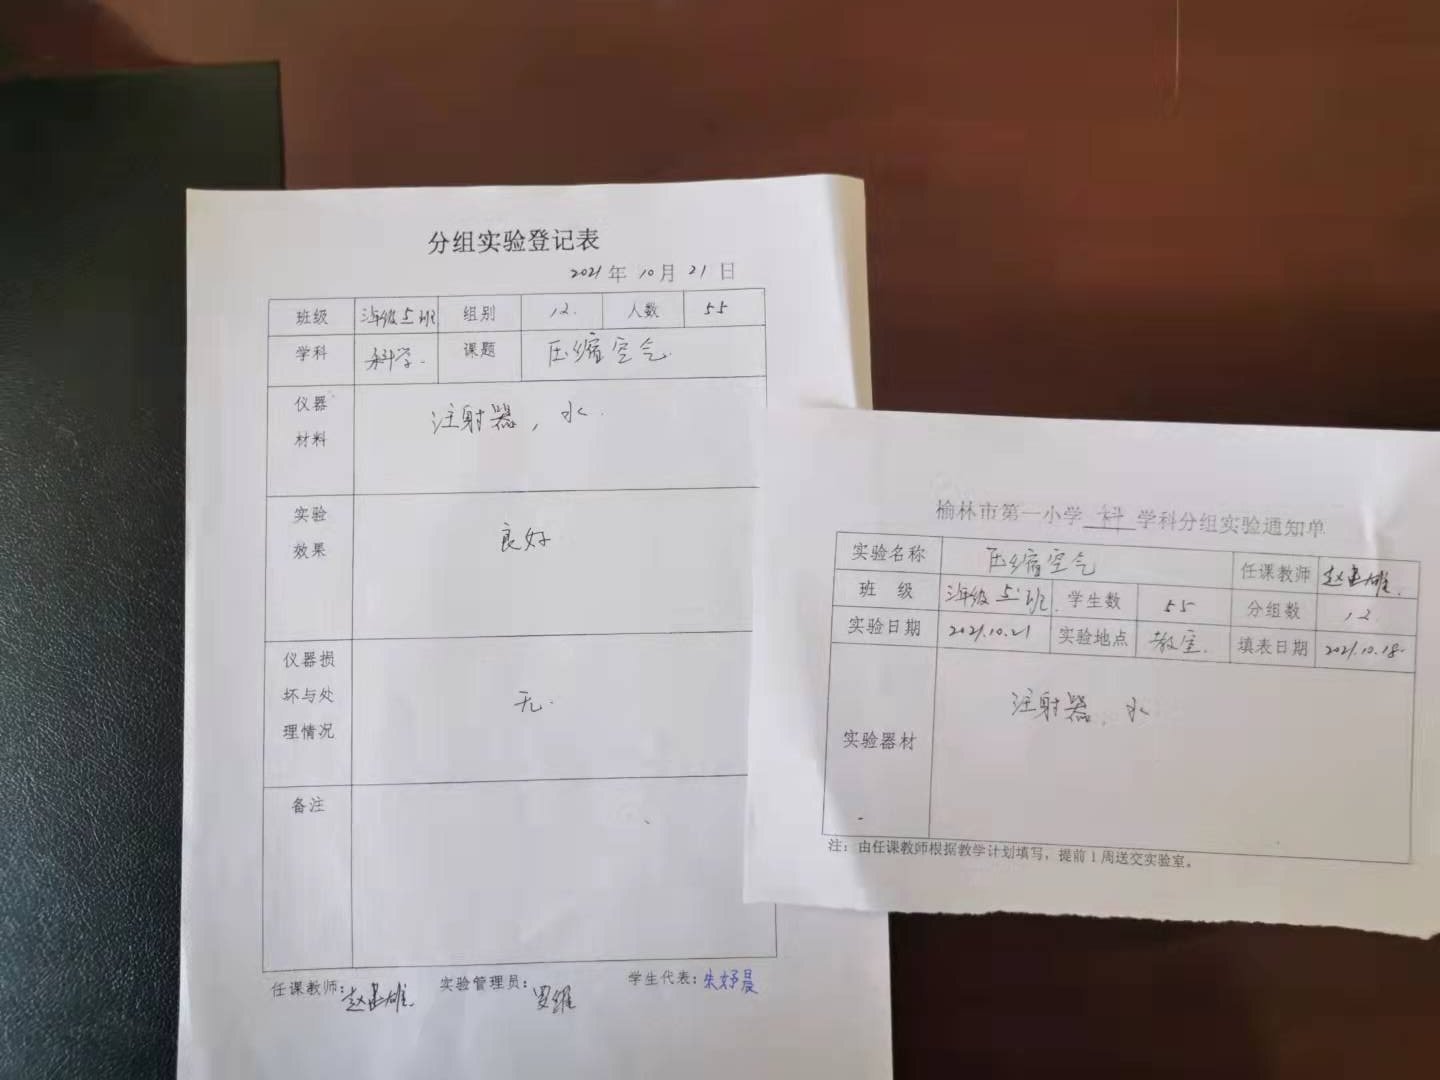 分组实验登记表
2021年10月21日
班级 三年级5班 组别 12. 人数 55
学科 科学. 课题 压缩空气.
仪器材料 注射器,水.
实验效果 良好
仪器损坏与处理情况 无.
备注
任课教师:赵建雄 实验管理员:罗维 学生代表:朱妤晨
榆林市第一小学 科 学科分组实验通知单
实验名称 压缩空气 任课教师 赵建雄.
班 级 三年级5班. 学生数 55 分组数 12.
实验日期 2021.10.21 实验地点 教室. 填表日期 2021.10.18.
实验器材 注射器,水
注:由任课教师根据教学计划填写,提前1周送交实验室。